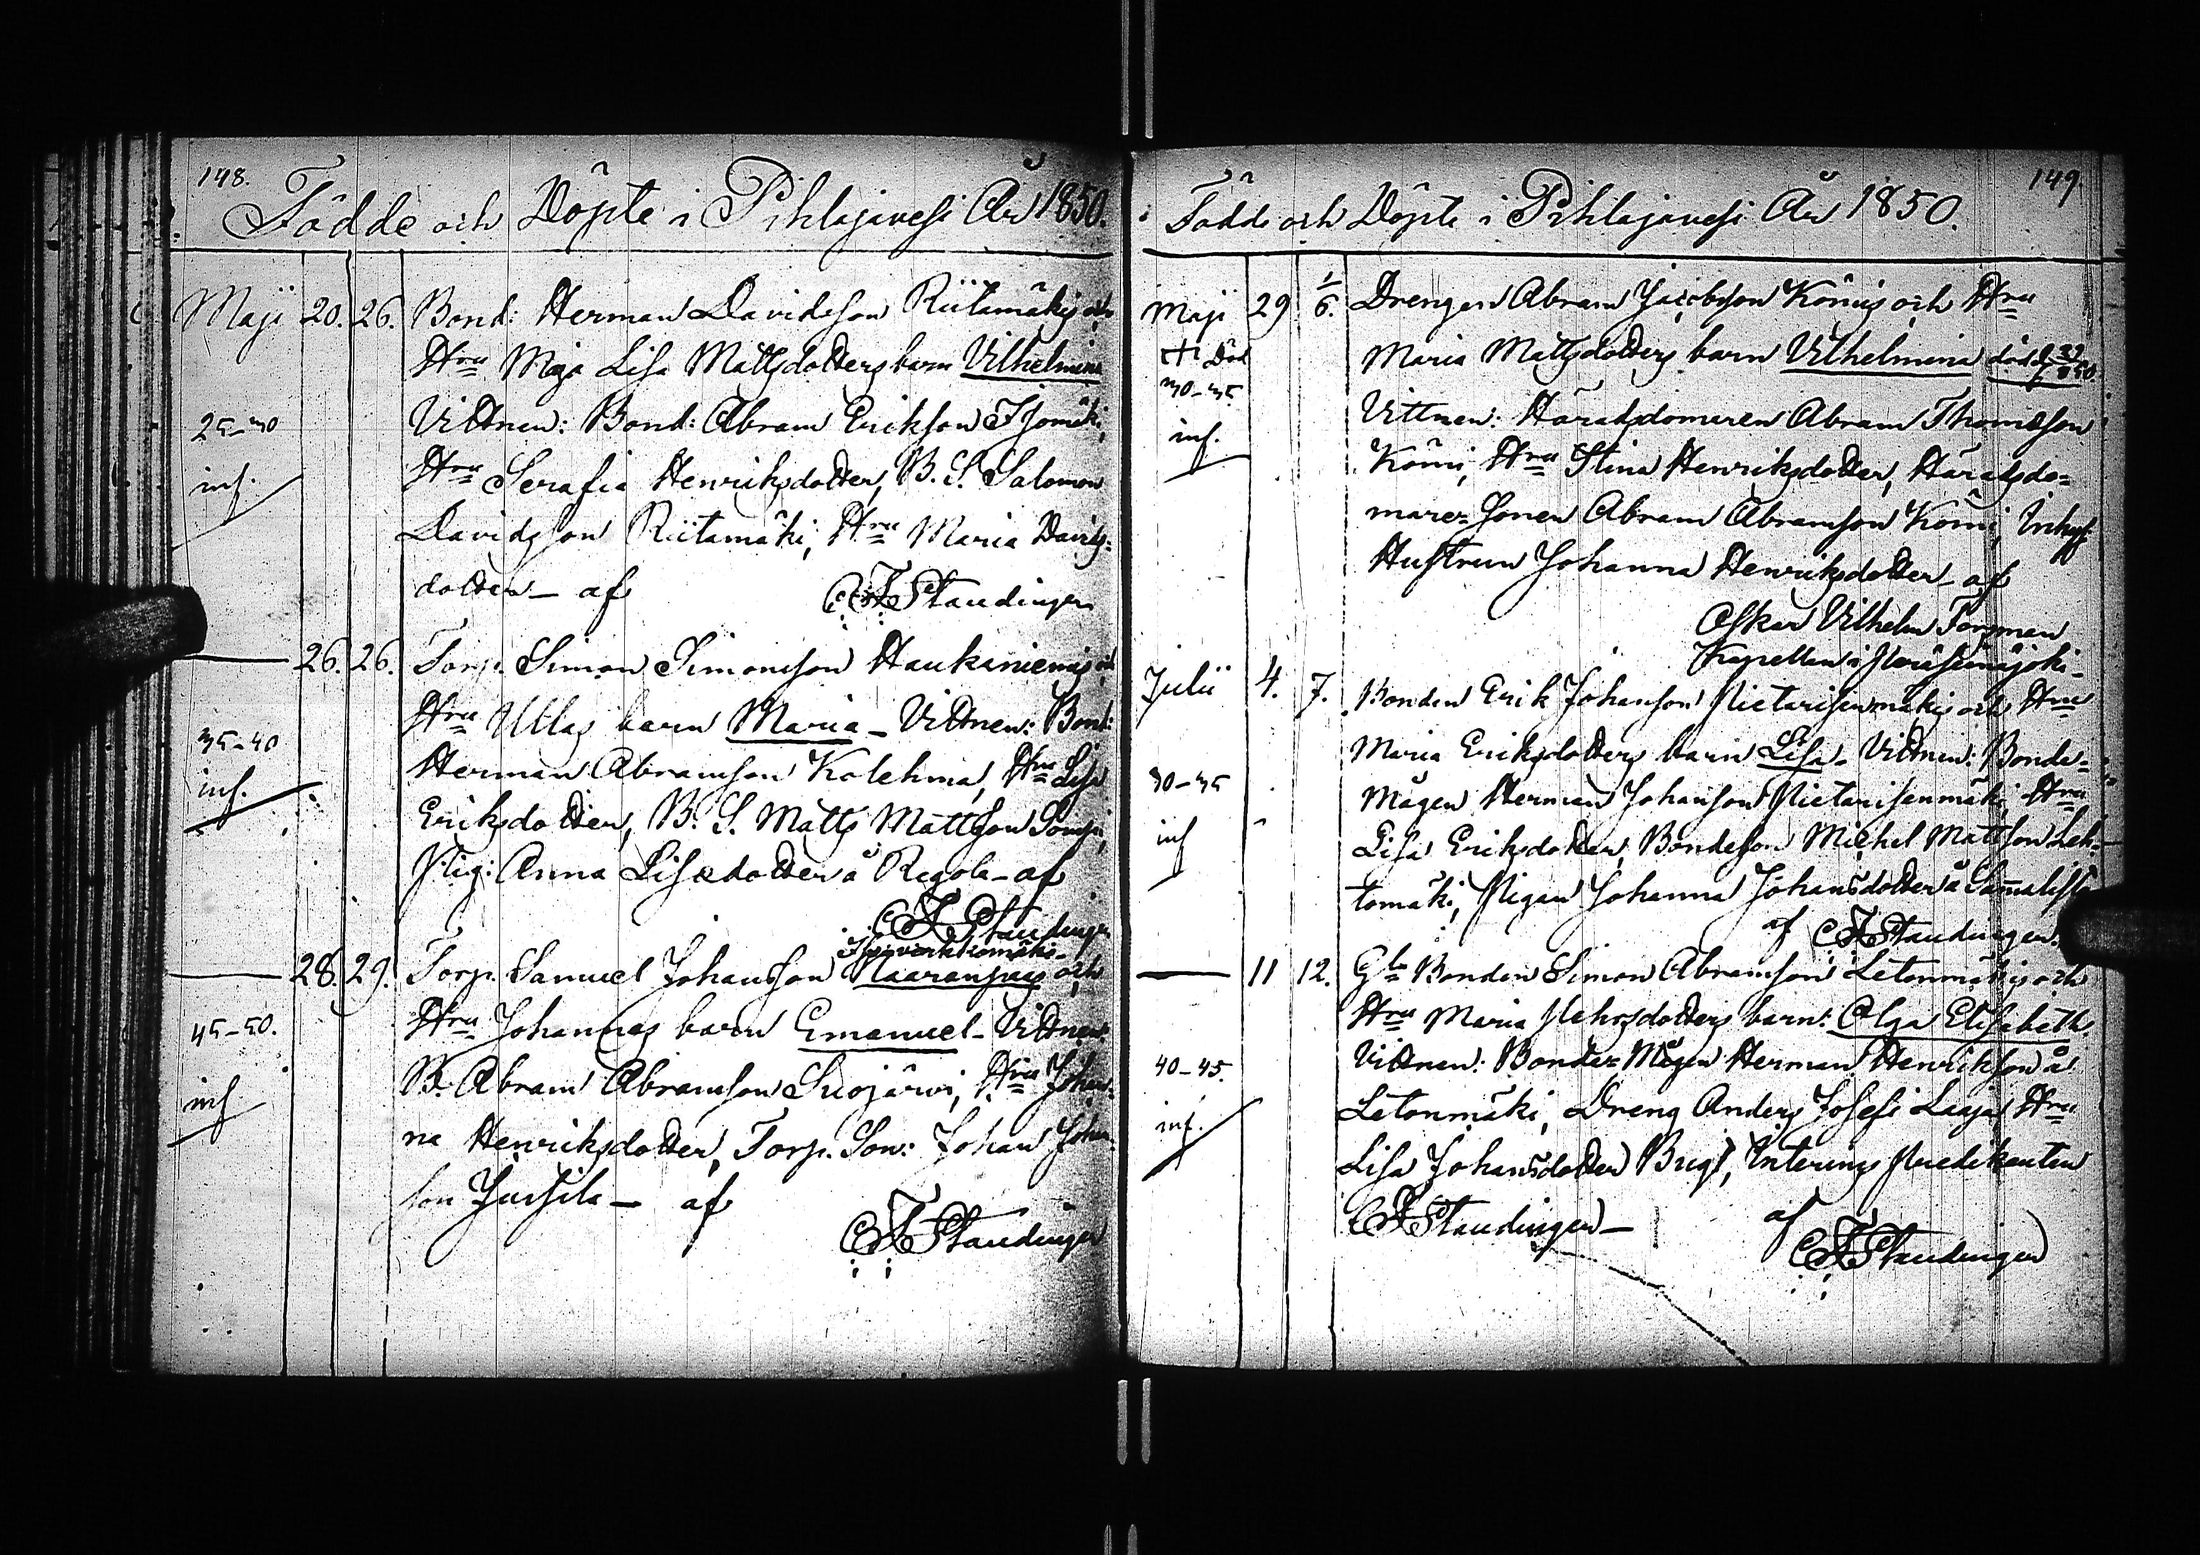 148.
Födde och Döpte i Pihlajavesi År 1850.
Maji 20. 26. Bond: Herman Davidsson Riitamäkis och
Hru Maja Lisa Mattsdotters barn Vilhelmina
25–30 Vittnen: Bond: Abram Erikson
inf. Hru Serafia Henriksdotter, B. S. Salomon
Davidsson Riitamäki, Hru Maria Davids-
dotter – af CFStaudinger
26. 26. Torp. Simon Simonsson Haukaniemis och
Hru Ullas barn Maria – Vittnen: Bond:
35–40 Herman Abramson Kolehma, Hru Lisa
inf. Eriksdotter, B. S. Matts Mattsson
Pig: Anna Lisadotter å Regola – af
CFStaudinger
28. 29. Torp. Samuel Johansson Naaranjas och
Hru Johannas barn Emanuel – Vittnen:
45–50. B. Abram Abramson Suojärvi, Hru Johan-
inf na Henriksdotter, Torp. Son: Johan Johan-
son Jussila – af
CFStaudinger
149.
Födde och Döpte i Pihlajavesi År 1850.
Maji 29 1/6. Drengen Abram Jacobsson Kömis och Hru
Död Maria Mattsdotters barn Vilhelmina död
30–35 Vittnen: Häradsdomeren Abram Thomasson
inf. Kömi, Hru Stina Henriksdotter, Häradsdo-
mare-Sonen Abram Abramsson Kömi, Inhys
Hustrun Johanna Henriksdotter – af
Oskar Vilhelm Forsman
Kapellan i Peräseinäjoki –
Julii 4. 7. Bonden Erik Johansson Pietarisenmäkis och Hru
Maria Eriksdotters barn Lisa – Vittnen: Bonde-
30–35 Mågen Herman Johansson Pietarisenmäki, Hru
inf Lisa Eriksdotter, Bondeson Michel Mattsson Leh-
tomäki, Pigan Johanna Johansdotter å
af CFStaudinger.
11 12. Gle Bonden Simon Abramsson Letonmäkis och
Hru Maria Mehrsdotters barn: Olga Elisabeth
Vittnen: Bonde-Mågen Herman Henriksson å
40–45. Letonmäki, Dreng Anders Josefs Laaja, Hru
inf. Lisa Johansdotter Bugt, Interims Predikanten
CFStaudinger – af
CFStaudinger